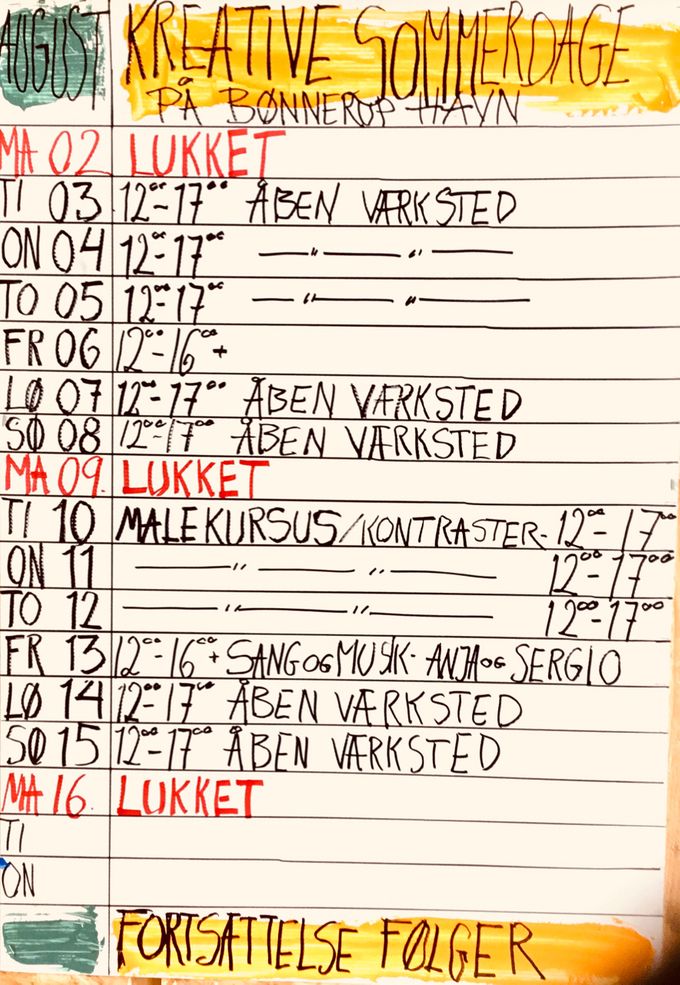 AUGUST KREATIVE SOMMERDAGE
PÅ BØNNERUP HAVN
MA 02 LUKKET
TI 03 12⁰⁰-17⁰⁰ ÅBEN VÆRKSTED
ON 04 12⁰⁰-17⁰⁰ — " — " —
TO 05 12⁰⁰-17⁰⁰ — " — " —
FR 06 12⁰⁰-16⁰⁰ +
LØ 07 12⁰⁰-17⁰⁰ ÅBEN VÆRKSTED
SØ 08 12⁰⁰-17⁰⁰ ÅBEN VÆRKSTED
MA 09. LUKKET
TI 10 MALEKURSUS/KONTRASTER- 12⁰⁰-17⁰⁰
ON 11 — " — " — 12⁰⁰-17⁰⁰
TO 12 — " — " — 12⁰⁰-17⁰⁰
FR 13 12⁰⁰-16⁰⁰ + SANG OG MUSIK- ANJA OG SERGIO
LØ 14 12⁰⁰-17⁰⁰ ÅBEN VÆRKSTED
SØ 15 12⁰⁰-17⁰⁰ ÅBEN VÆRKSTED
MA 16. LUKKET
TI
ON
FORTSÆTTELSE FØLGER